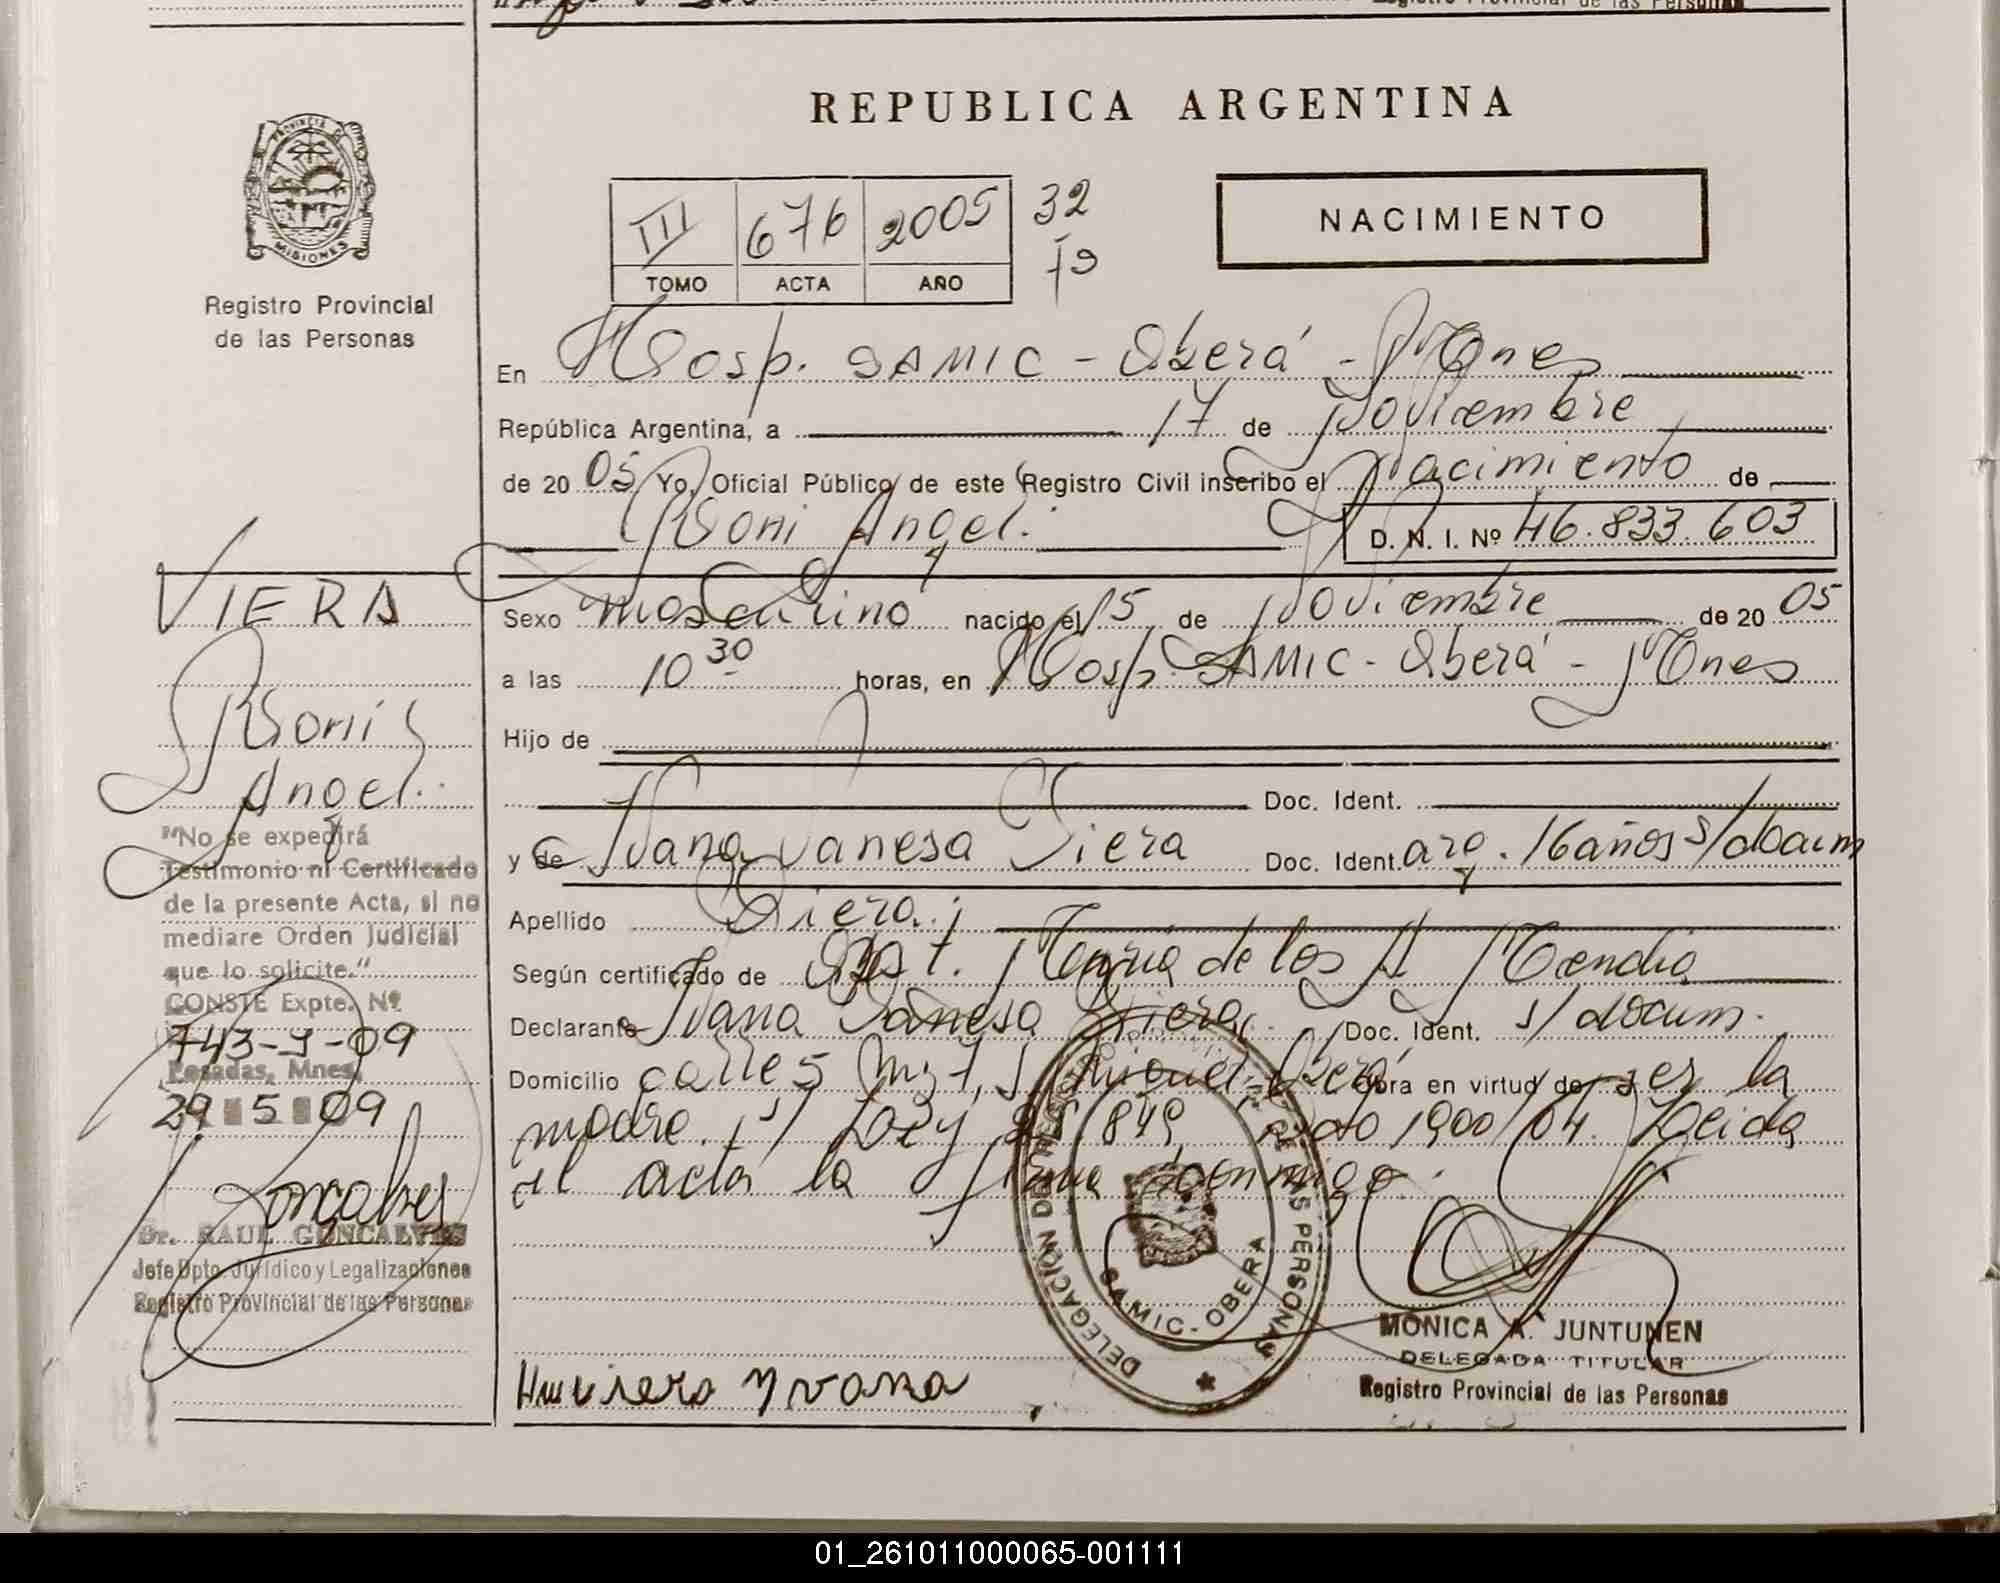 Registro Provincial de las Personas
REPUBLICA ARGENTINA
PROVINCIA DE MISIONES
Registro Provincial
de las Personas
III 676 2005 32
TOMO ACTA AÑO
NACIMIENTO
En Hosp. SAMIC - Oberá - Mnes
República Argentina, a 17 de Noviembre
de 2005 Yo, Oficial Público de este Registro Civil inscribo el Nacimiento de
Roni Angel. D. N. I. Nº 46.833.603
Sexo masculino nacido el 15 de Noviembre de 2005
a las 10 30 horas, en Hosp. SAMIC - Oberá - Mnes
Hijo de
Doc. Ident.
y de Ivana Vanesa Viera Doc. Ident. arg. 16 años s/docum
Apellido Viera.
Según certificado de Obst. María de los A. Mendia
Declarante Ivana Vanesa Viera. Doc. Ident. s/docum.
Domicilio calle 5 Miguel Oberá obra en virtud de ser la
madre. s/ Ley 25 849 Dcto 1900/04. Leida
el acta la firma conmigo.
VIERA
Roni
Angel.
"No se expedirá
Testimonio ni Certificado
de la presente Acta, si no
mediare Orden Judicial
que lo solicite."
CONSTE Expte. Nº
743-J-09
Posadas, Mnes,
29 5 09
Dr. RAUL GONCALVES
Jefe Dpto. Jurídico y Legalizaciones
Registro Provincial de las Personas
DELEGACION DE LAS PERSONAS
SAMIC - OBERA
MONICA A. JUNTUNEN
DELEGADA TITULAR
Registro Provincial de las Personas
Yvana
01_261011000065-001111